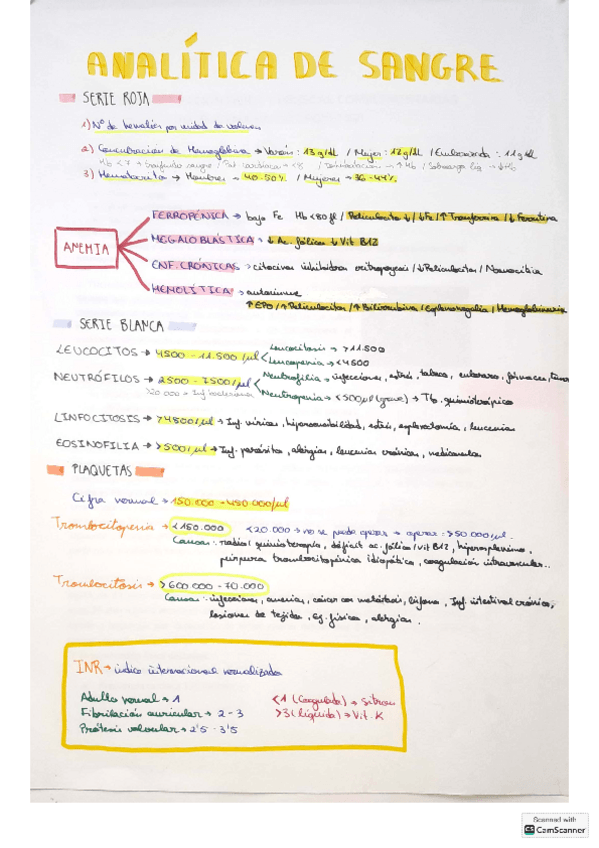 ANALÍTICA DE SANGRE
SERIE ROJA
1) Nº de hematíes por unidad de volumen
2) Concentración de Hemoglobina → Varón: 13 g/dl / Mujer: 12 g/dl / Embarazada: 11 g/dl
Hb < 7 → Transfundir sangre / Pat. cardiaca → <8 / Deshidratación → ↑ Hb / Sobrecarga líq → ↓Hb
3) Hematocrito → Hombres → 40-50% / Mujeres → 36-44%
ANEMIA
FERROPÉNICA → bajo Fe Hb<80 fl / Reticulocitos ↓ / ↓Fe / ↑ Transferrina / ↓ Ferritina
MEGALOBLÁSTICA → ↓ Ac. fólico ↓ Vit B12
ENF. CRÓNICAS → citocinas inhibidoras eritropoyesis / ↓Reticulocitos / Normocítica
HEMOLÍTICA → autoinmune
↑ EPO / ↑ Reticulocitos / ↑ Bilirrubina / Esplenomegalia / Hemoglobinuria
SERIE BLANCA
LEUCOCITOS → 4500 - 11.500 /μl
Leucocitosis → >11.500
Leucopenia → <4500
NEUTRÓFILOS → 2500 - 7500/μl
Neutrofilia → infecciones, estrés, tabaco, embarazo, fármacos,
Neutropenia → <500μl (grave) → Tto. quimioterápico
LINFOCITOSIS → >4500/μl → Inf. víricas, hipersensibilidad, estrés, esplenectomía, leucemias
EOSINOFILIA → >500/μl → Inf. parásitos, alergias, leucemias crónicas, medicamentos
PLAQUETAS
Cifra normal → 150.000 - 450.000/μl
Trombocitopenia → <150.000 <20.000 → no se puede operar → operar: >50.000/μl.
Causas: radio/quimioterapia, déficit ac. fólico/vit B12, hiperesplenismo,
púrpura trombocitopénica idiopática, coagulación intravascular..
Trombocitosis → >600.000 - 70.000
Causas: infecciones, anemias, cáncer con metástasis, linfoma, Inf. intestinal crónica,
lesiones de tejidos, ej. físico, alergias.
INR → índice internacional normalizado
Adulto normal → 1 <1 (Coagulada) → Sintrom
Fibrilación auricular → 2 - 3 >3 (líquida) → Vit. K
Prótesis valvular → 2'5 - 3'5
Scanned with
CS CamScanner